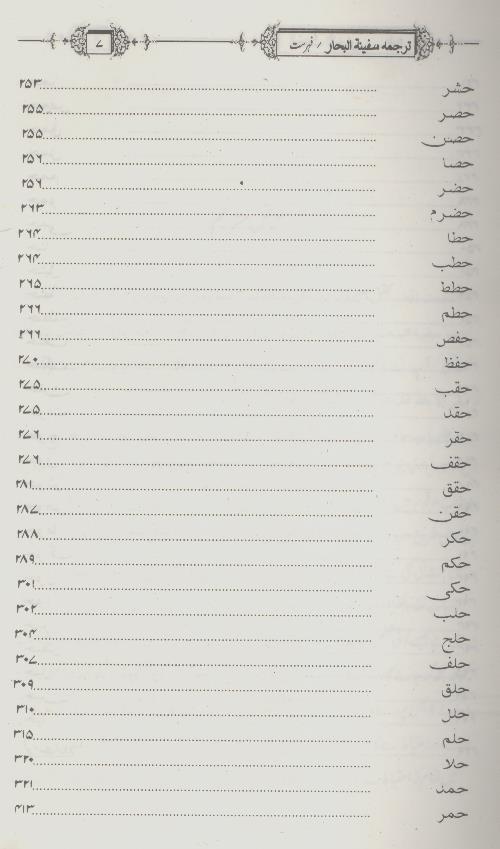 ترجمه سفینة البحار / فهرست ۷
حشر ۲۵۳
حصر ۲۵۵
حصن ۲۵۵
حصا ۲۵۶
حضر ۲۵۶
حضرم ۲۶۳
حطا ۲۶۴
حطب ۲۶۴
حطط ۲۶۵
حطم ۲۶۶
حفص ۲۶۶
حفظ ۲۷۰
حقب ۲۷۵
حقد ۲۷۵
حقر ۲۷۶
حقف ۲۷۶
حقق ۲۸۱
حقن ۲۸۷
حکر ۲۸۸
حکم ۲۸۹
حکی ۳۰۱
حلب ۳۰۲
حلج ۳۰۴
حلف ۳۰۷
حلق ۳۰۹
حلل ۳۱۰
حلم ۳۱۵
حلا ۳۲۰
حمد ۳۲۱
حمر ۴۱۳